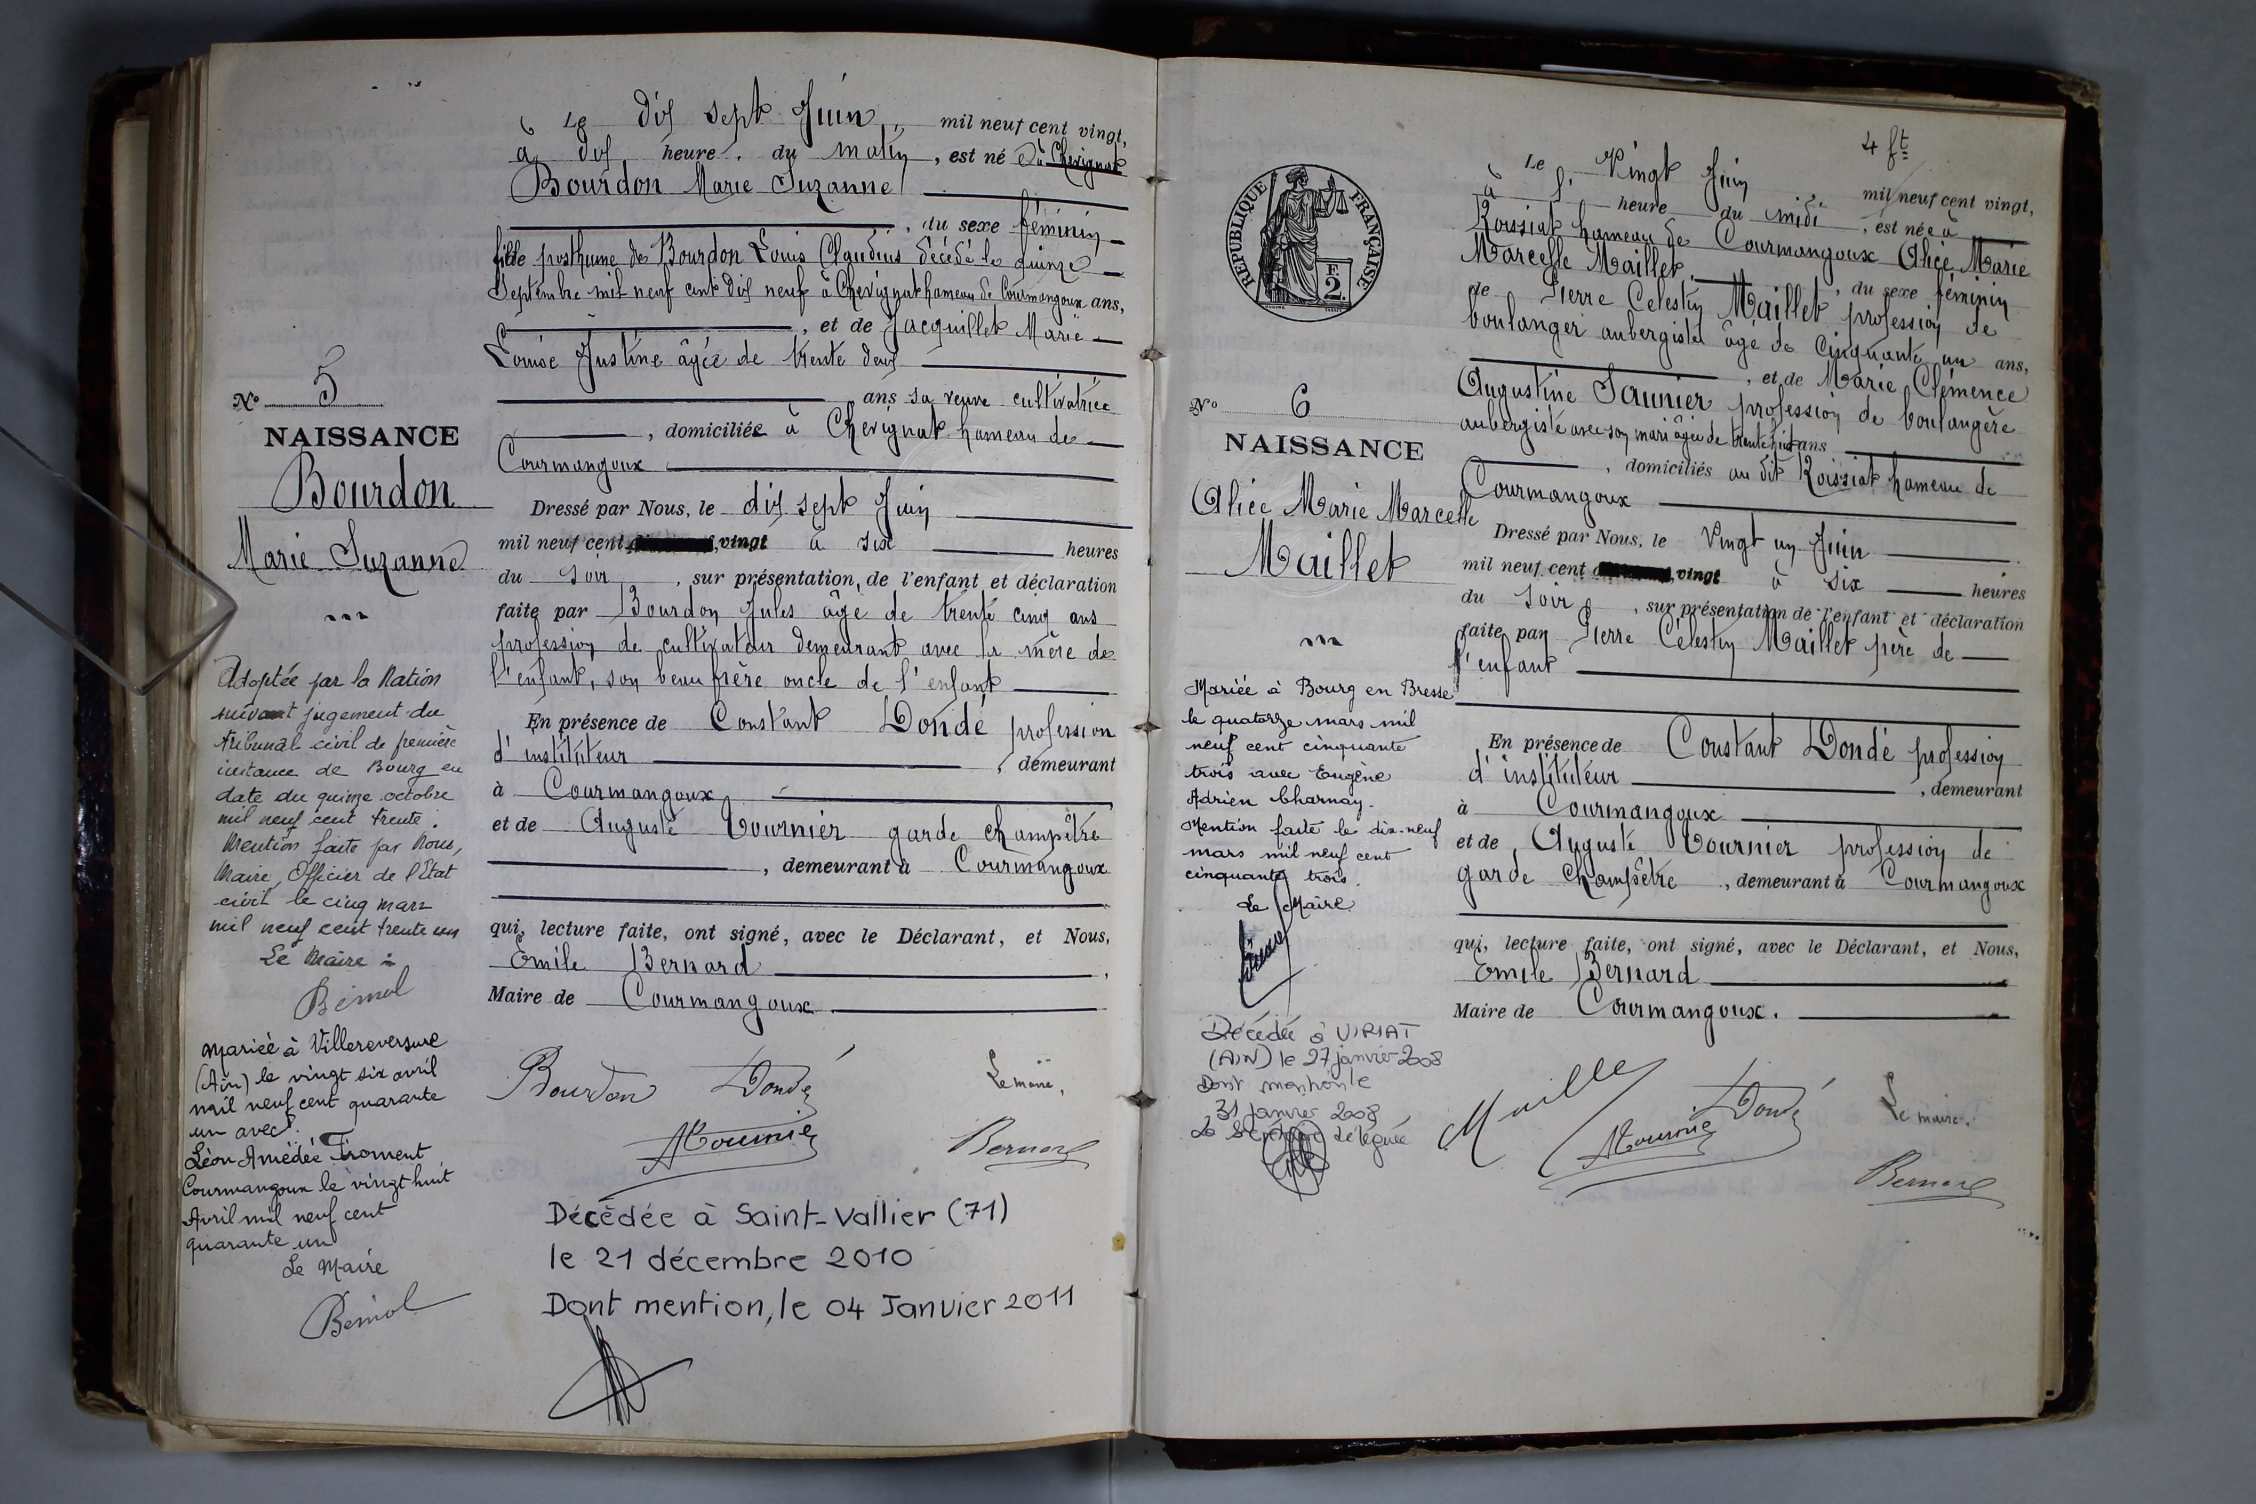 Le dix sept Juin, mil neuf cent vingt,
à dix heure du matin, est né e à Chevignat
Bourdon Marie Suzanne
, du sexe féminin
fille posthume de Bourdon Louis Claudius décédé le quinze
Septembre mil neuf cent dix neuf à Chevignat hameau de Courmangoux ans,
, et de Jacquillet Marie
Louise Justine âgée de trente deux
ans sa veuve cultivatrice
, domiciliée à Chevignat hameau de
Courmangoux
Dressé par Nous, le dix sept Juin
mil neuf cent vingt à six heures
du soir, sur présentation, de l'enfant et déclaration
faite par Bourdon Jules âgé de trente cinq ans
profession de cultivateur demeurant avec la mère de
l'enfant, son beau frère oncle de l'enfant
En présence de Constant Dondé profession
d'instituteur, demeurant
à Courmangoux
et de Auguste Tournier garde champêtre
, demeurant à Courmangoux
qui, lecture faite, ont signé, avec le Déclarant, et Nous,
Emile Bernard,
Maire de Courmangoux.
Bourdon Dondé Le maire,
Tournier Bernard
Décédée à Saint-Vallier (71)
le 21 décembre 2010
Dont mention, le 04 Janvier 2011
No 5
NAISSANCE
Bourdon
Marie Suzanne
Adoptée par la Nation
suivant jugement du
tribunal civil de première
instance de Bourg en
date du quinze octobre
mil neuf cent trente.
Mention faite par Nous,
Maire, Officier de l'État
civil le cinq mars
mil neuf cent trente un
Le Maire
Mariée à Villereversure
(Ain) le vingt six avril
mil neuf cent quarante
un avec
Léon Amédée Froment
Courmangoux le vingt huit
Avril mil neuf cent
quarante un
Le Maire
4 ft
RÉPUBLIQUE FRANÇAISE
F.
2.
Le Vingt Juin mil neuf cent vingt,
à heure du midi, est née à
Roissiat hameau de Courmangoux Alice Marie
Marcelle Maillet, du sexe féminin
de Pierre Celestin Maillet profession de
boulanger aubergiste âgé de cinquante un ans,
, et de Marie Clémence
Augustine Saunier profession de boulangère
aubergiste avec son mari âgée de trente huit ans
, domiciliés au dit Roissiat hameau de
Courmangoux
Dressé par Nous, le Vingt un Juin
mil neuf cent vingt à six heures
du soir, sur présentation de l'enfant et déclaration
faite par Pierre Célestin Maillet père de
l'enfant
En présence de Constant Dondé profession
d'instituteur, demeurant
à Courmangoux
et de Auguste Tournier profession de
garde champêtre, demeurant à Courmangoux
qui, lecture faite, ont signé, avec le Déclarant, et Nous,
Emile Bernard
Maire de Courmangoux.
Maillet Dondé Le maire.
Tournier Bernard
No 6
NAISSANCE
Alice Marie Marcelle
Maillet
Mariée à Bourg en Bresse
le quatorze mars mil
neuf cent cinquante
trois avec Eugène
Adrien Charnay.
Mention faite le dix-neuf
mars mil neuf cent
cinquante trois.
Le Maire
Décédée à VIRIAT
(AIN) le 27 janvier 2008
Dont mention le
31 janvier 2008
déléguée